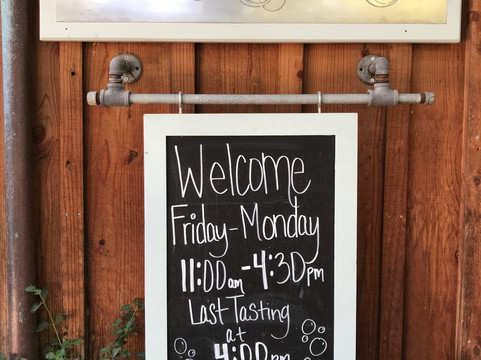 Welcome
Friday-Monday
11:00am-4:30pm
Last Tasting
at
4:00pm